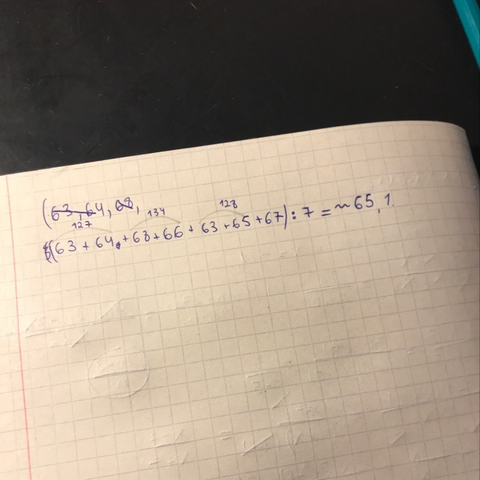 (63, 64, 68,
127 134 128
((63 + 64 + 68 + 66 + 63 + 65 + 67) : 7 = ~65,1